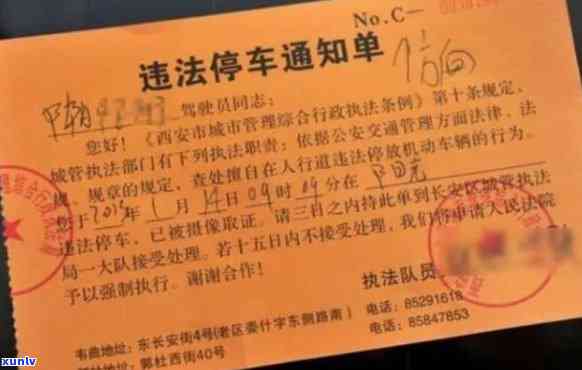 No.C—
违法停车通知单
驾驶员同志：
您好！《西安市城市管理综合行政执法条例》第十条规定，
城管执法部门有下列执法职责：依据公安交通管理方面法律、法
规、规章的规定，查处擅自在人行道违法停放机动车辆的行为。
您于2015年1月14日09时09分在
违法停车，已被摄像取证。请三日之内持此单到长安区城管执法
局一大队接受处理。若十五日内不接受处理，我们将申请人民法院
予以强制执行。谢谢合作！
执法队员
韦曲地址：东长安街4号(老区委什字东侧路南) 电话：85291618
郭杜西街40号 电话：85847853
xunlv